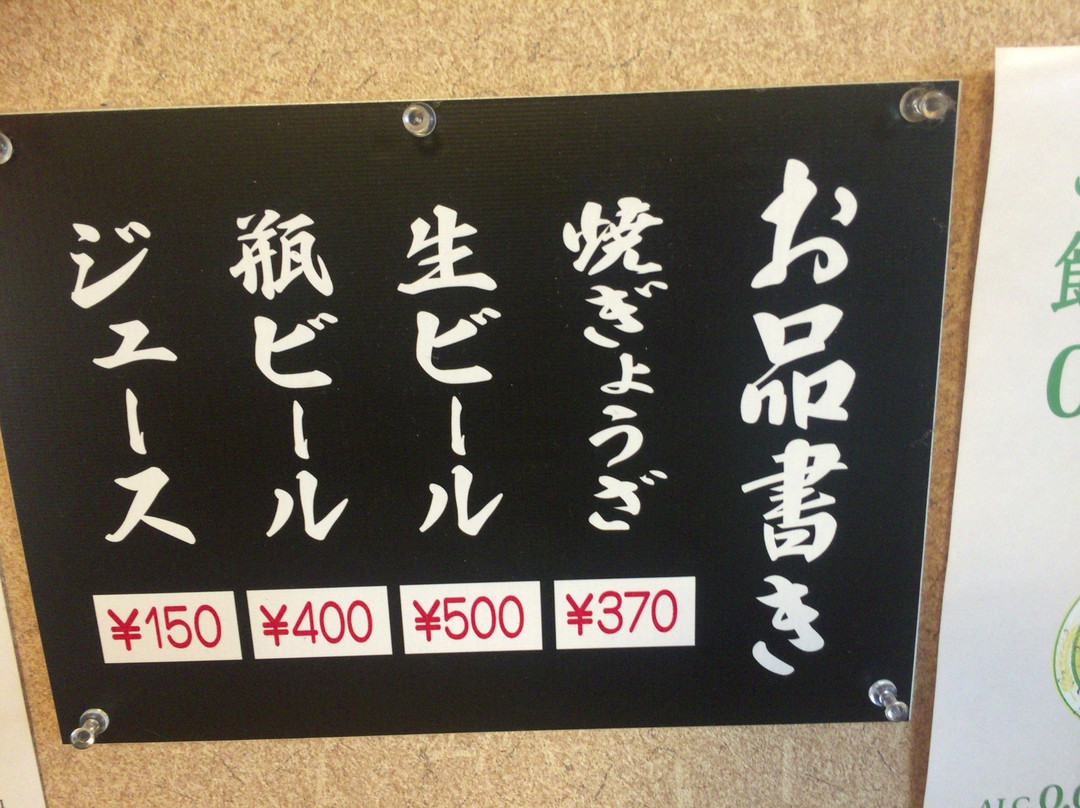 お品書き
焼ぎょうざ
¥370
生ビール
¥500
瓶ビール
¥400
ジュース
¥150